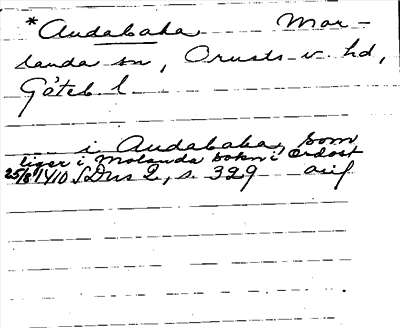 *Audabaka Mor-
landa sn, Orusts v. hd,
Göteb. l
i Audabaka, som
liger i Molanda sokn i Ordost
25/8 1410 SDns 2, s. 329 asif